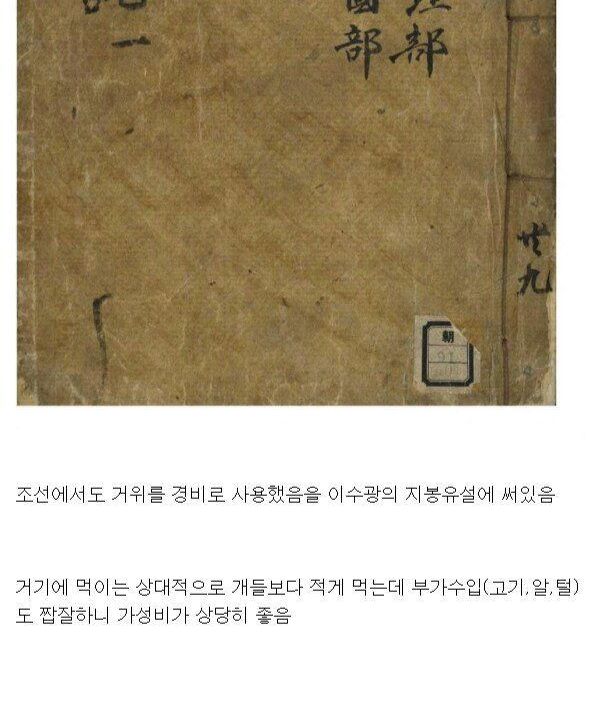 部
國部
一
九
朝
조선에서도 거위를 경비로 사용했음을 이수광의 지봉유설에 써있음
거기에 먹이는 상대적으로 개들보다 적게 먹는데 부가수입(고기,알,털)
도 짭잘하니 가성비가 상당히 좋음